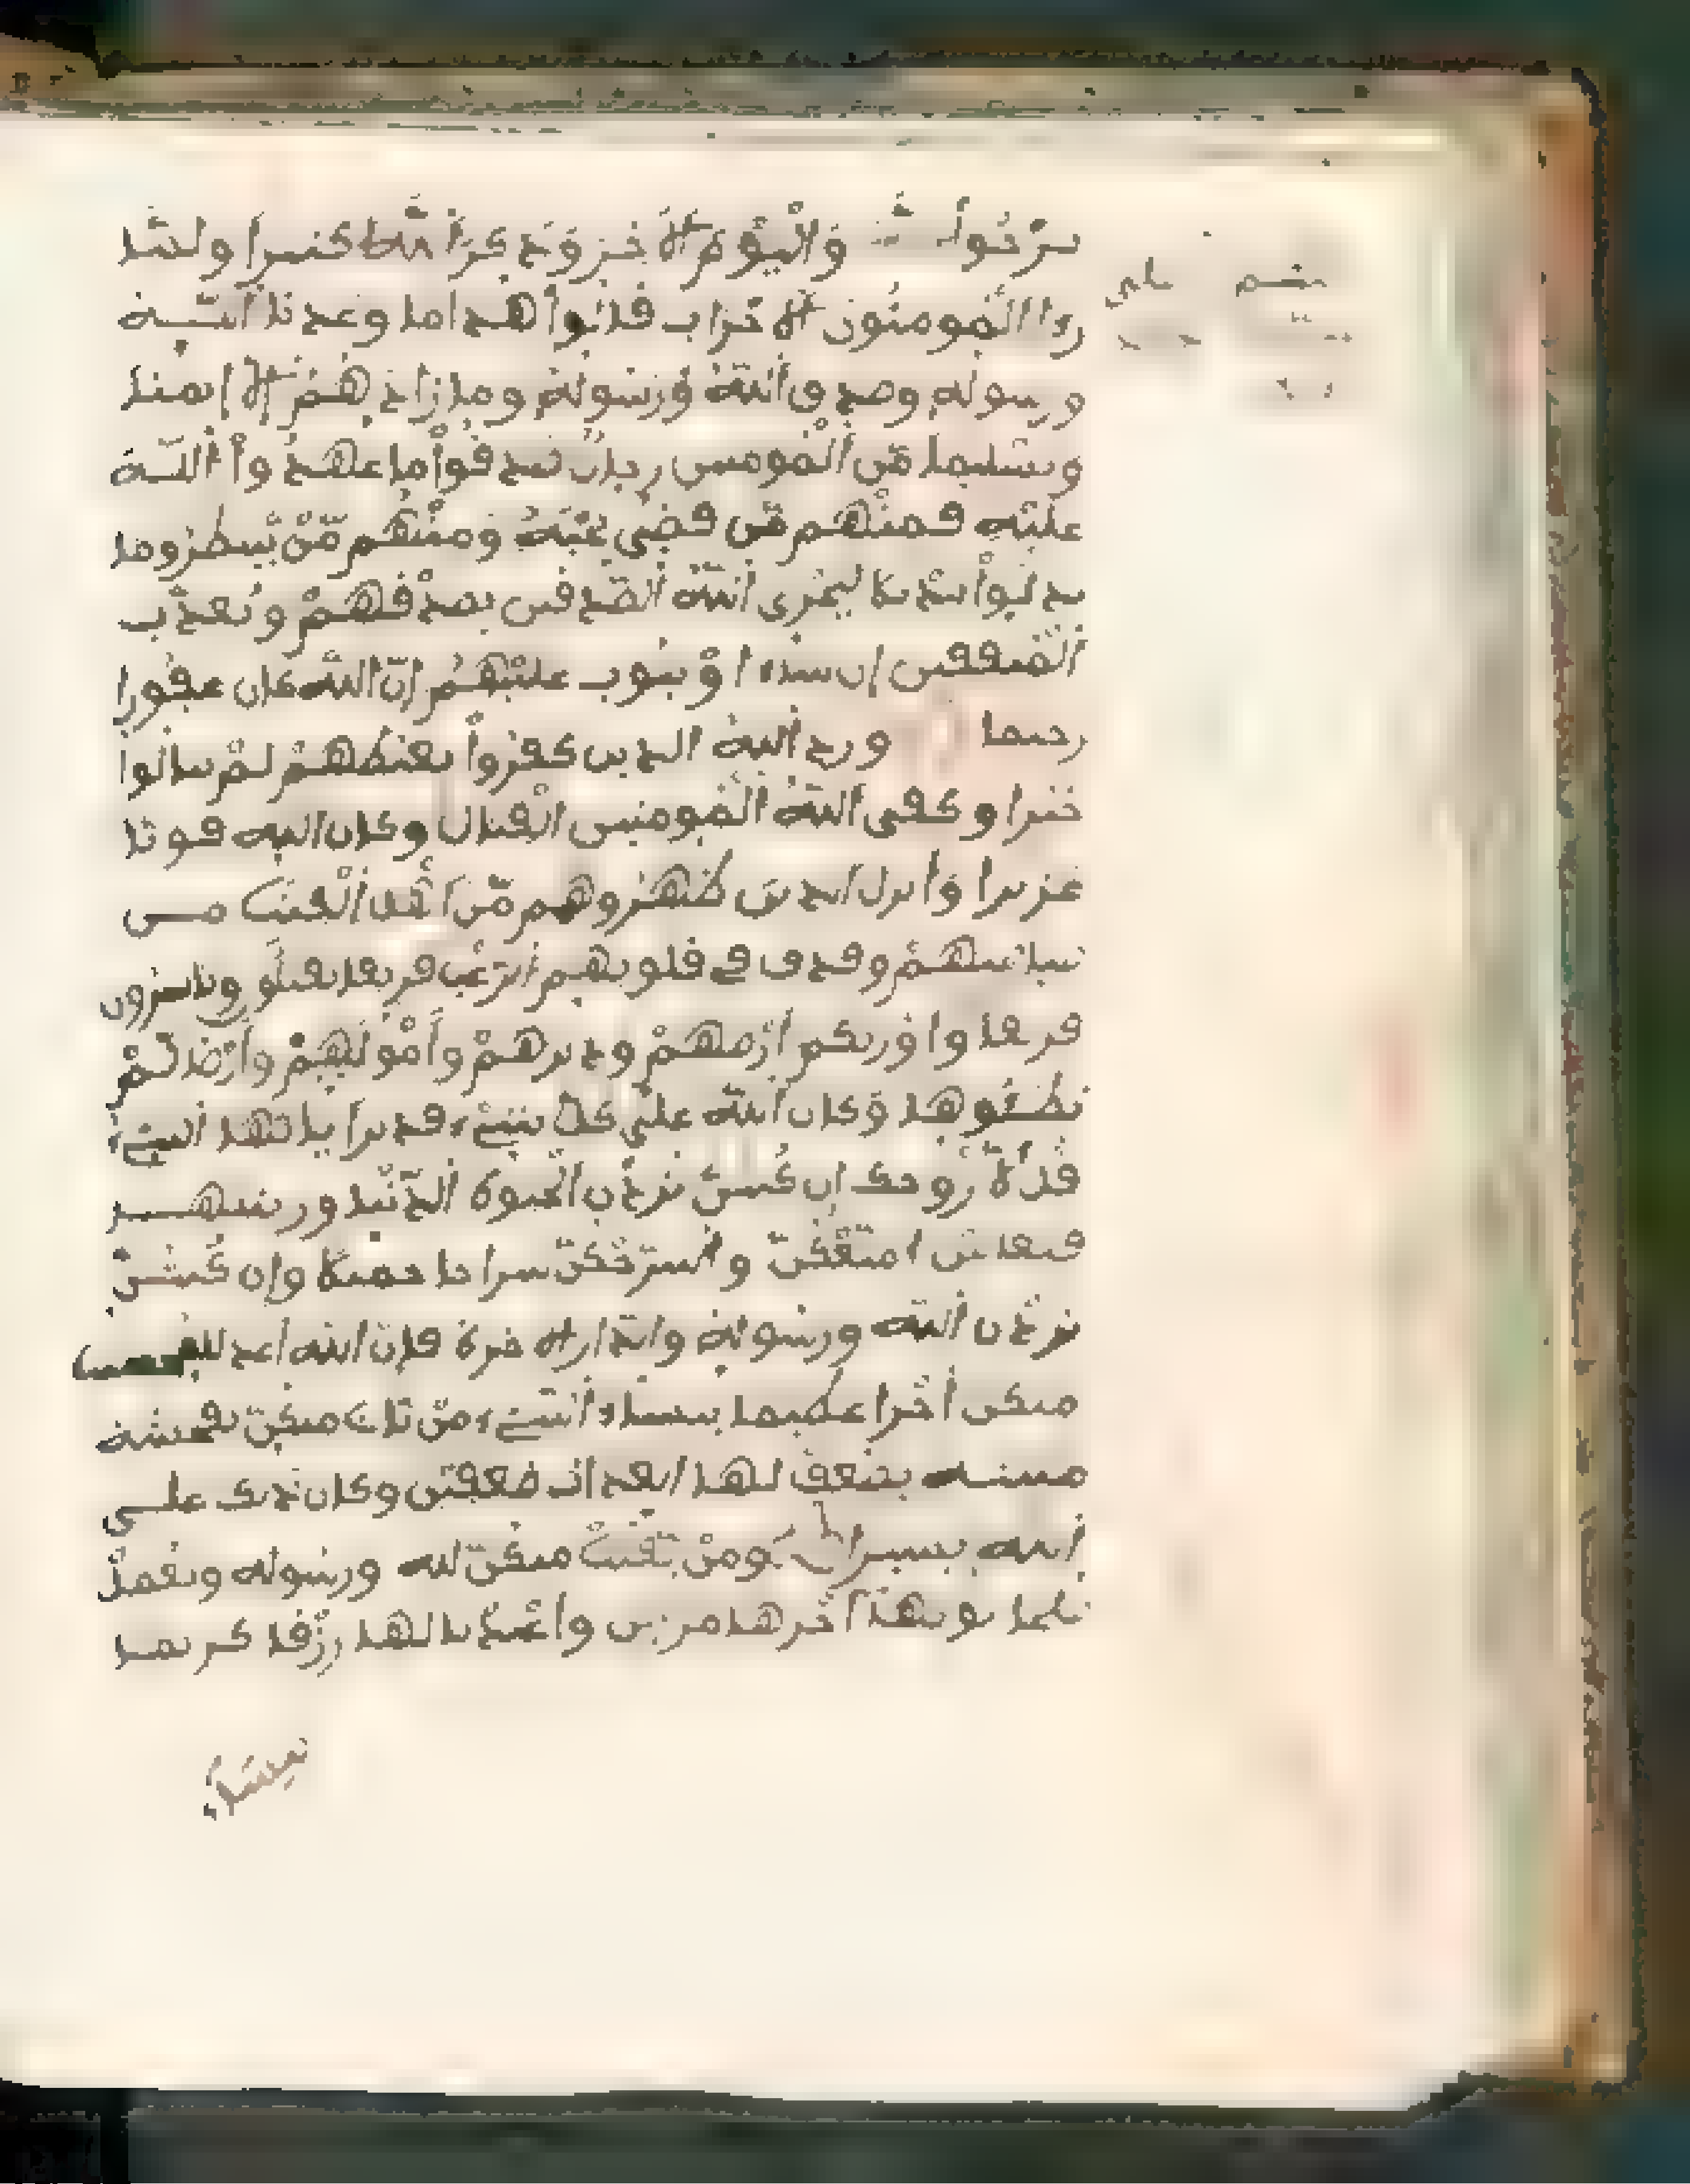 يرجوا الله واليوم الاخر وذكر الله كثيرا ولما
رءا المومنون الاحزاب قالوا هذا ما وعدنا الله
ورسوله وصدق الله ورسوله وما زادهم إلا إيمنا
وتسليما من المومنين رجال صدقوا ما عهدوا الله
عليه فمنهم من قضى نحبه ومنهم من ينتظر وما
بدلوا تبديلا ليجزي الله الصدقين بصدقهم ويعذب
المنفقين إن شاء او يتوب عليهم إن الله كان غفورا
رحيما ورد الله الذين كفروا بغيظهم لم ينالوا
خيرا وكفى الله المومنين القتال وكان الله قويا
عزيزا وانزل الذين ظهروهم من اهل الكتب من
صياصيهم وقذف في قلوبهم الرعب فريقا تقتلون وتاسرون
فريقا واورثكم أرضهم وديرهم وأمولهم وأرضا لم
تطئوها وكان الله على كل شيء قديرا يايها النبيء
قل لأزوجك إن كنتن تردن الحيوة الدنيا وزينتها
فتعالين امتعكن وأسرحكن سراحا جميلا وإن كنتن
تردن الله ورسوله والدار الاخرة فإن الله أعد للمحسنت
منكن أجرا عظيما ينساء النبيء من يات منكن بفحشة
مبينة يضعف لها العذاب ضعفين وكان ذلك على
الله يسيرا ومن يقنت منكن لله ورسوله وتعمل
صلحا نوتها أجرها مرتين وأعتدنا لها رزقا كريما
ينساء